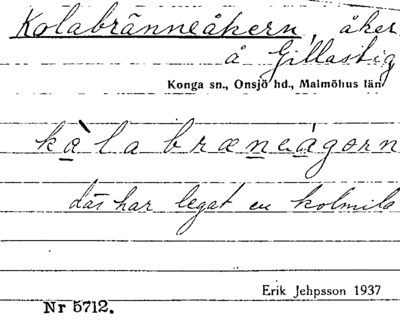 Kolabränneåkern, åker
å Gillastig
Konga sn., Onsjö hd., Malmöhus län
kòlabræneágorn
där har legat en kolmila
Erik Jehpsson 1937
Nr 5712.